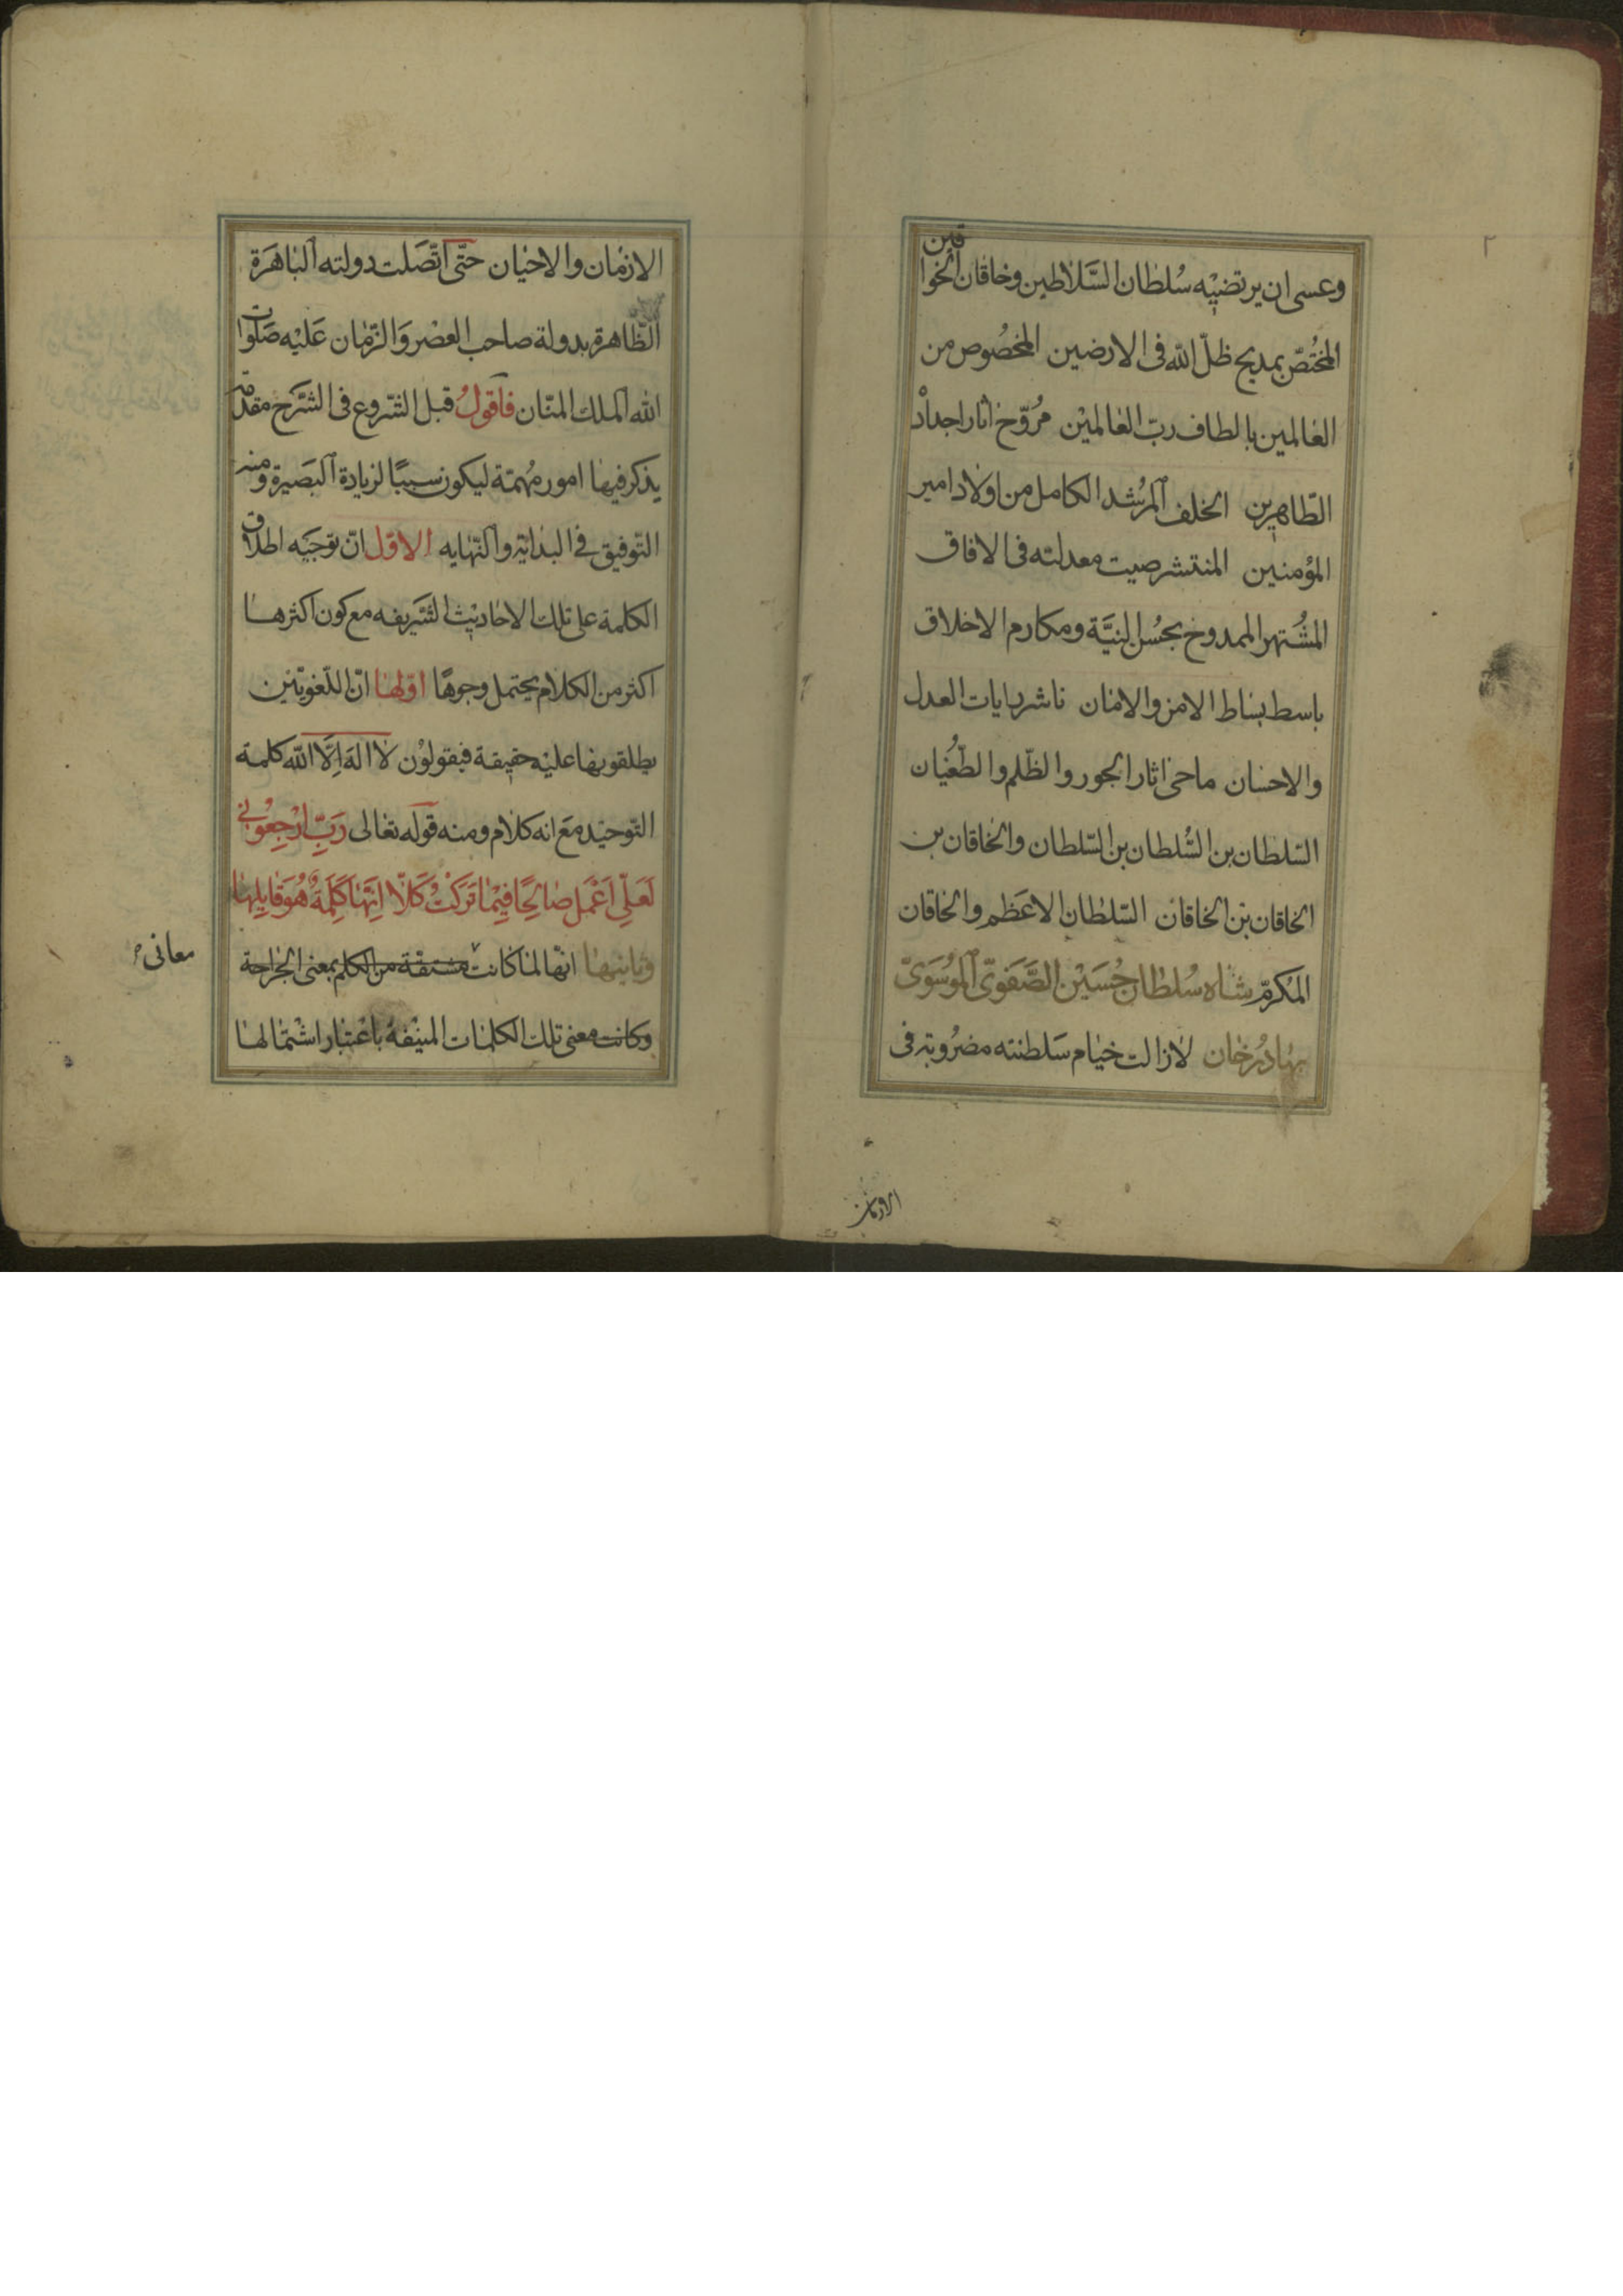 ٢
وعسى ان يرتضيه سُلطان السَّلاطين وخاقان الخواقين
المختُصّ بمديح ظلّ الله فى الارضين المخصُوص من
العالمين بالطاف ربّ العالميْن مُروّج اثار اجدادْ
الطّاهرين الخلف المرشُد الكامل من اولاد امير
المؤمنين المنتشر صيت معدلته فى الافاق
المشُتهر الممدوح بحُسن النيَّة ومكارم الاخلاق
باسط بساط الامن والامان ناشر رايات العدل
والاحسان ماحى اثار الجور والظّلم والطّغُيان
السّلطان بن السُّلطان بن السّلطان والخاقان بن
الخاقان بن الخاقان السّلطان الاعَظم والخاقان
المكرمّ شاه سُلطان حُسَيْن الصَّفَوىّ الموُسَوىّ
بهادرُخان لازالت خيام سَلطنته مضرُوبة فى
الازمان
الازمان والاحيان حتّى اتّصَلت دولته الباهَرة
الظّاهرة بدولة صاحب العصْر وَالزّمان عَليْه صَلوات
الله الملك المنّان فاَقولُ قبل الشّروع فى الشَّرح مقدّمة
يذكر فيها امور مُهمتة ليكون سببًا لزيادة البَصَيرة ومنه
التّوفيق فى البداية والنّهايه الاوّل انّ توجيَه اطلاق
الكلمة على تلك الاحاديْث الشَّريفه مع كون اكثرها
اكثر من الكلام يحتمل وجوهًا اوّلها انّ اللّغويّين
يطلقونها عليْه حقيقة فيقولوُن لا اله اِلَّا الله كلمة
التّوحيْد معَ انه كلام ومنه قوله تعالى رَبِّ ارْجِعُوْنِ
لَعَلِّى اَعْمَل صَالِحًا فِيْما تَرَكْتُ كَلّا اِنَّهَا كَلِمَةٌ هُوَ قايِلها
وثانيها انّها لمّا كانت مشتقة من الكلم بمعنى الجراحة
وكانت معنى تلك الكلمات المنيْفهُ باعْتبار اشْتمالها
معانى